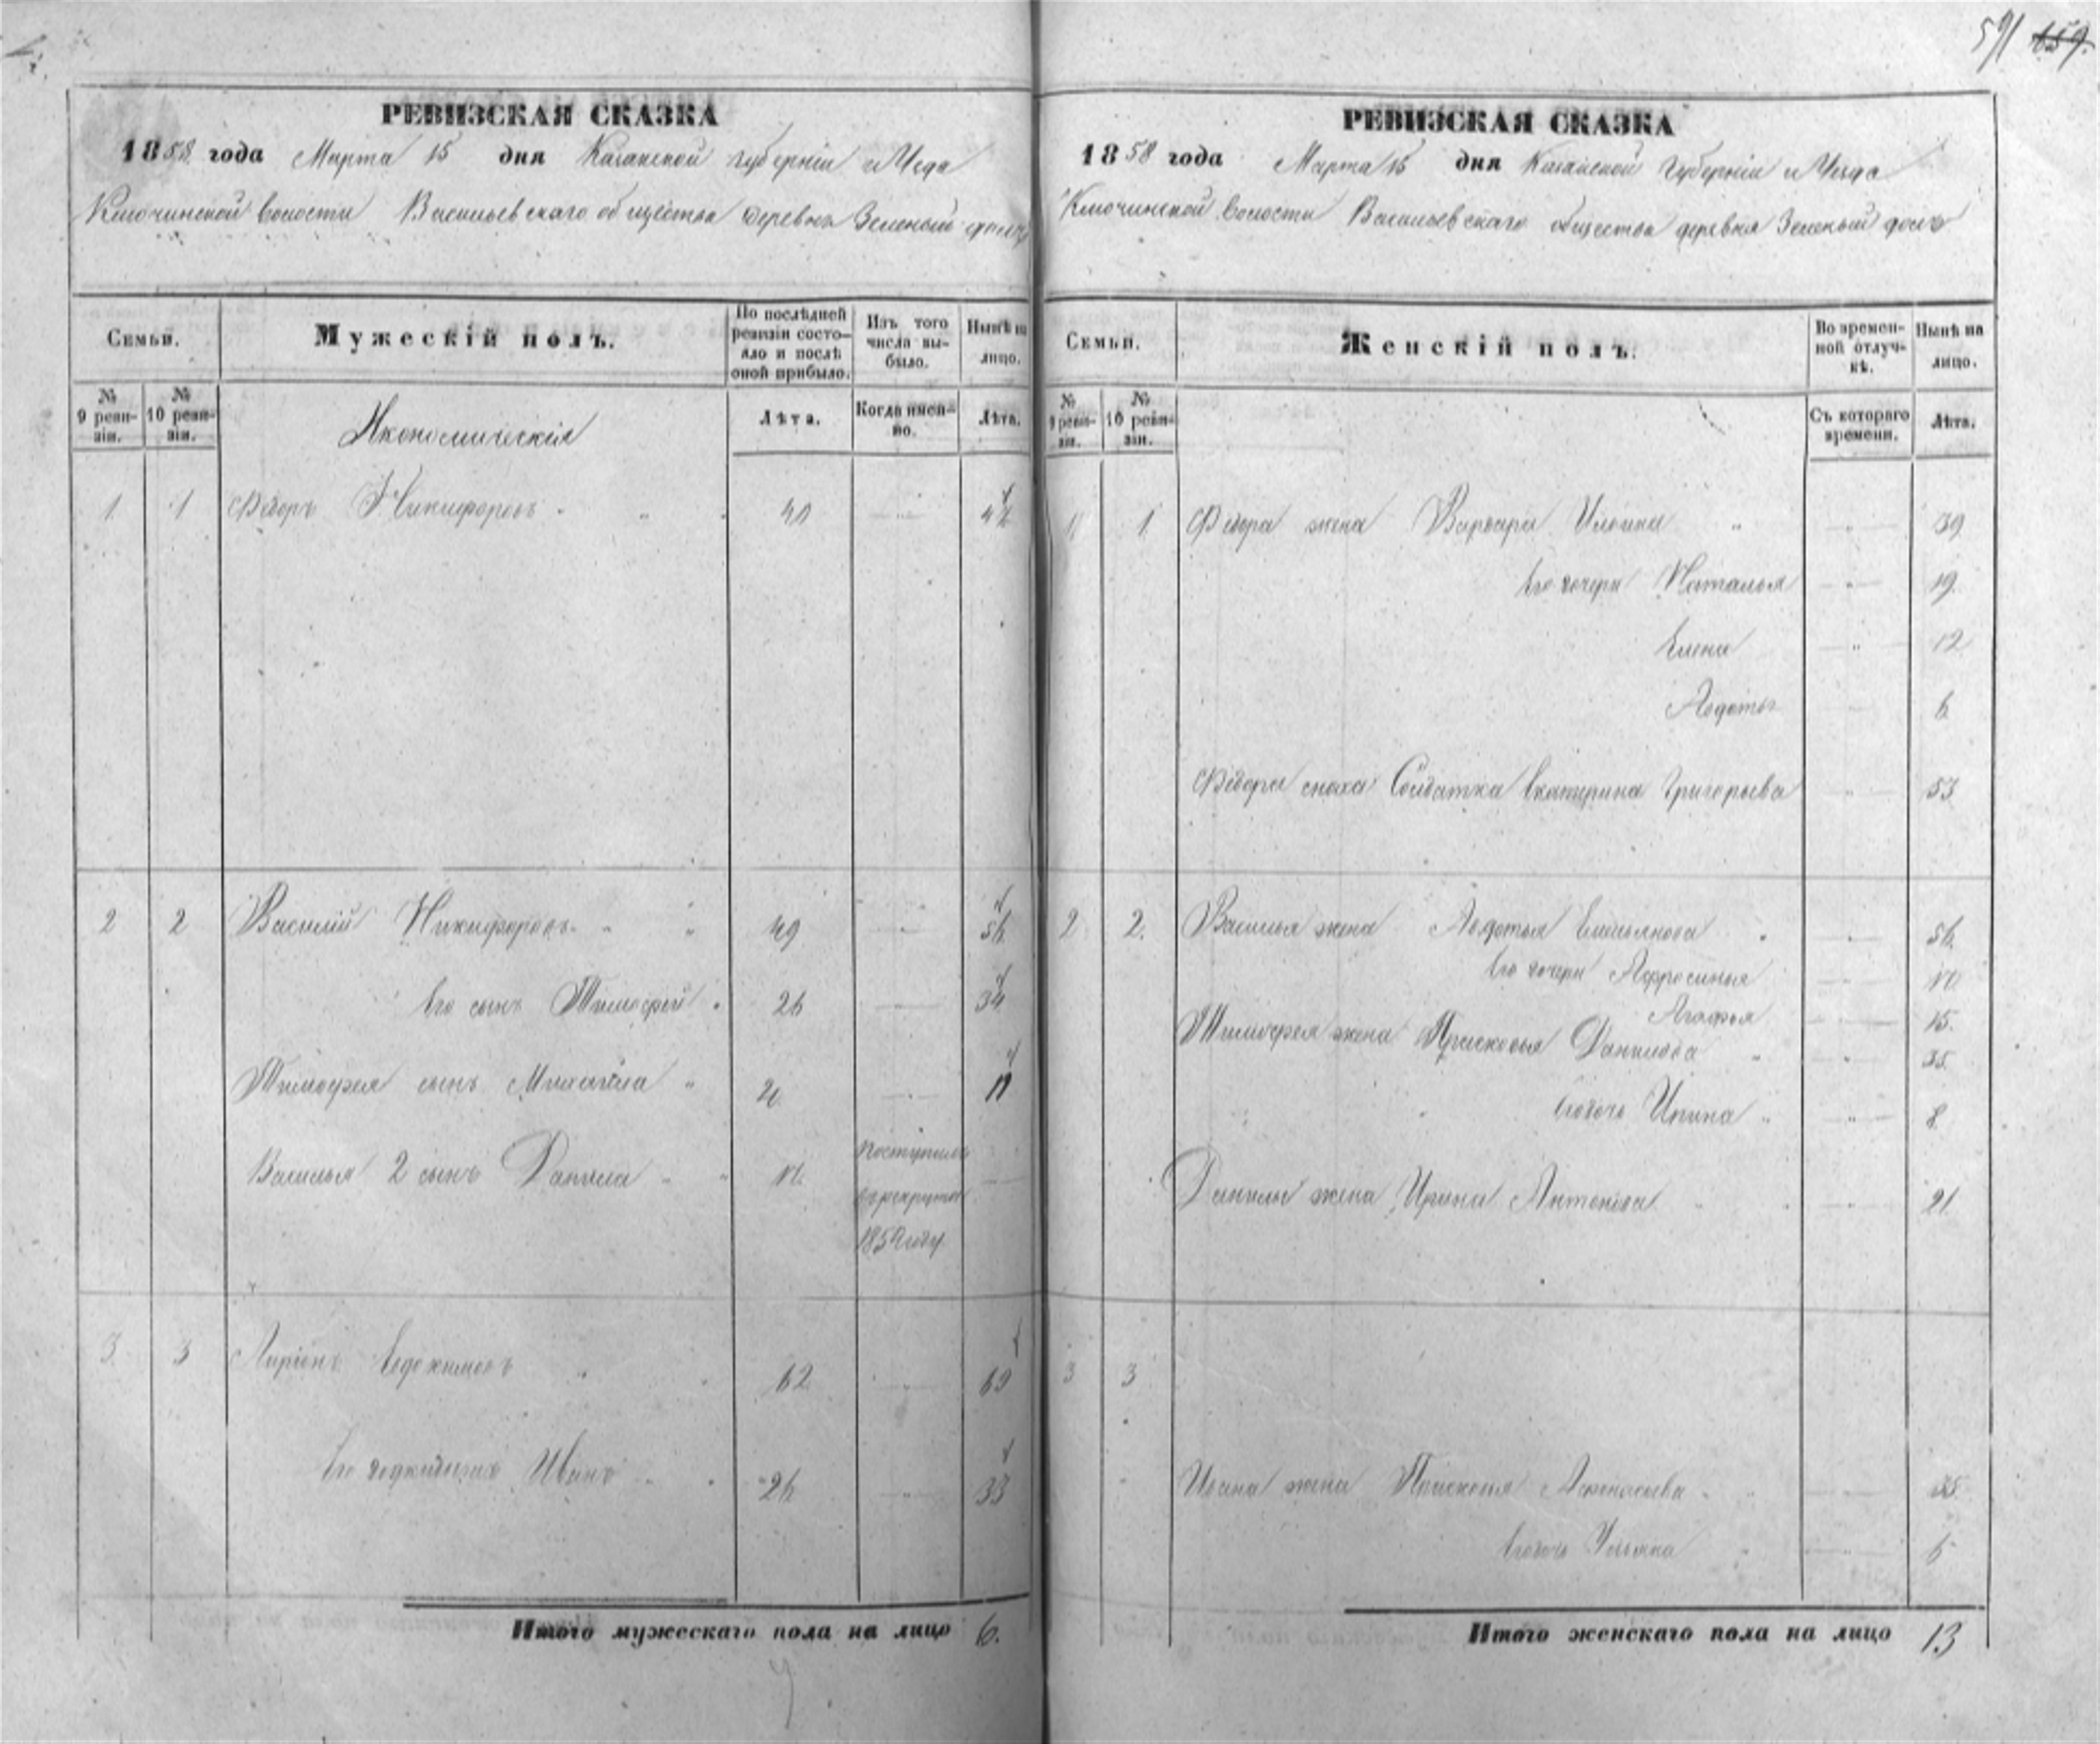 591 659.
РЕВИЗСКАЯ СКАЗКА
1858 года Марта 15 дня Казанской губерніи и Уезда
Ключинской волости Васильевскаго общества деревня Зеленый долъ
Семьи.
Мужескій полъ.
По послѣдней ревизіи состояло и послѣ оной прибыло.
Изъ того числа выбыло.
Нынѣ на лицо.
№ 9 ревизіи.
№ 10 ревизіи.
Икономическія
Лѣта.
Когда именно.
Лѣта.
1 1 Ѳедоръ Никифоровъ 40
2 2 Василий Никифоровъ 49 56
Его сынъ Тимофей 26 34
Тимофея сынъ Михайла 11
Василья 2 сынъ Данила
Поступилъ
в рекруты
185 году
3 3 Ларіонъ Евдокимовъ 62 69
Его Иванъ 26 33
Итого мужескаго пола на лицо 6.
РЕВИЗСКАЯ СКАЗКА
1858 года Марта 15 дня Казанской Губерніи и Уезда
Ключинской волости Васильевскаго общества деревня Зеленый долъ
Семьи.
Женскій полъ.
Во временной отлучкѣ.
Нынѣ на лицо.
№ 9 ревизіи.
№ 10 ревизіи.
Съ котораго времени.
Лѣта.
1 1 Ѳедора жена Варвара Ильина 39
Его дочери Наталья 19
Елена 12
Авдотья 6
Ѳедора сноха Солдатка Екатерина Григорьева 53
2 2. Василья жена Авдотья Емельянова 56
Его дочери Афросинья
Агафья 15.
Тимофея жена Прасковья Данилова 35
Ирина 8
Данилы жена Ирина Антонова 21
3 3
Ивана жена Прасковья Афонасьева 35
Ульяна
Итого женскаго пола на лицо 13